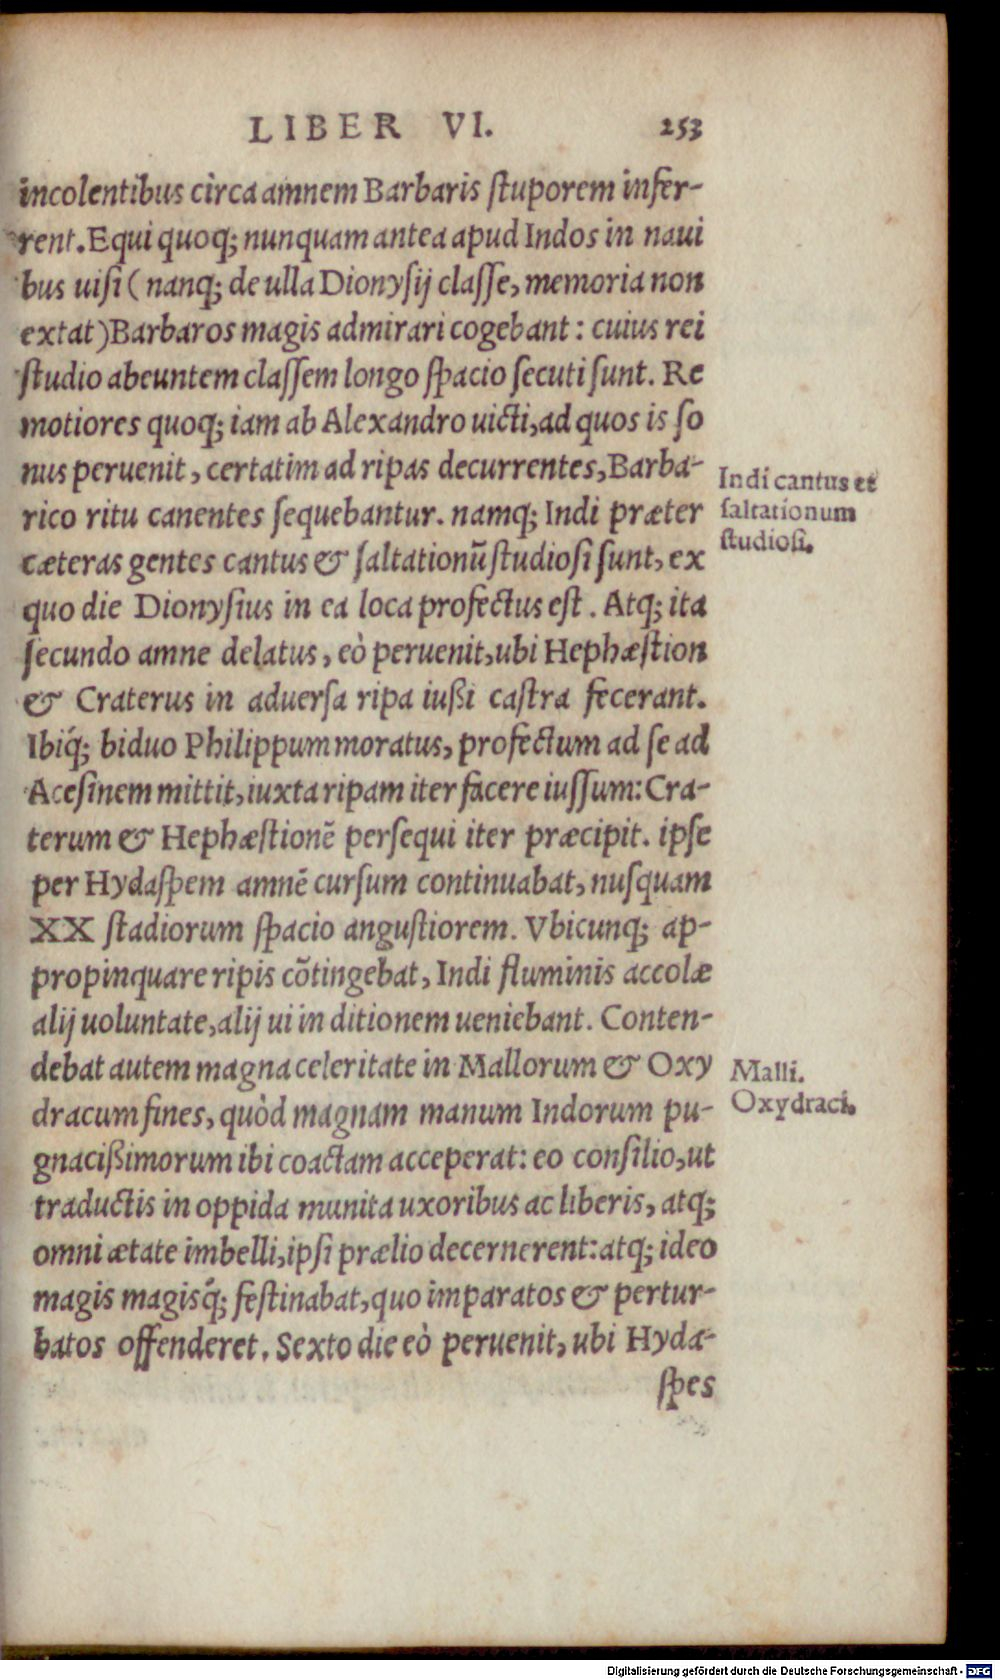 LIBER VI. 253
incolentibus circa amnem Barbaris ſtuporem infer-
rent. Equi quoq; nunquam antea apud Indos in naui
bus uiſi ( nanq; de ulla Dionyſij claſſe, memoria non
extat) Barbaros magis admirari cogebant : cuius rei
ſtudio abeuntem claſſem longo ſpacio ſecuti ſunt. Re
motiores quoq; iam ab Alexandro uicti, ad quos is ſo
nus peruenit, certatim ad ripas decurrentes, Barba-
rico ritu canentes ſequebantur. namq; Indi præter
cæteras gentes cantus & ſaltationũ ſtudioſi ſunt, ex
Indi cantus et
ſaltationum
ſtudioſi.
quo die Dionyſius in ea loca profectus eſt. Atq; ita
ſecundo amne delatus, eò peruenit, ubi Hephæſtion
& Craterus in aduerſa ripa iußi caſtra fecerant.
Ibiq́; biduo Philippum moratus, profectum ad ſe ad
Aceſinem mittit, iuxta ripam iter facere iuſſum: Cra-
terum & Hephæſtionẽ perſequi iter præcipit. ipſe
per Hydaſpem amnẽ curſum continuabat, nuſquam
XX ſtadiorum ſpacio anguſtiorem. Vbicunq; ap-
propinquare ripis cõtingebat, Indi fluminis accolæ
alij uoluntate, alij ui in ditionem ueniebant. Conten-
debat autem magna celeritate in Mallorum & Oxy
dracum fines, quòd magnam manum Indorum pu-
Malli.
Oxydraci.
gnacißimorum ibi coactam acceperat: eo conſilio, ut
traductis in oppida munita uxoribus ac liberis, atq;
omni ætate imbelli, ipſi prælio decernerent: atq; ideo
magis magisq́; feſtinabat, quo imparatos & pertur-
batos offenderet. Sexto die eò peruenit, ubi Hyda-
ſpes
Digitalisierung gefördert durch die Deutsche Forschungsgemeinschaft - DFG